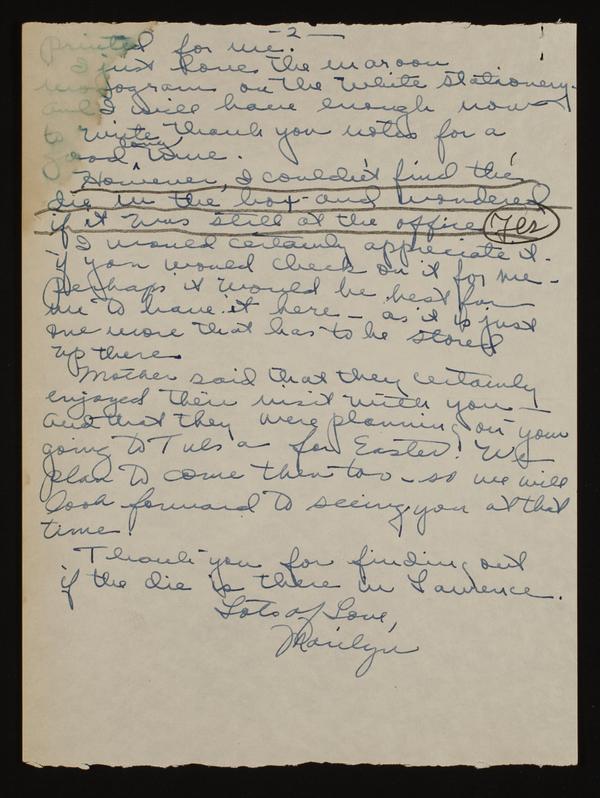 - 2 -
printed for me.
I just love the maroon
monogram on the white stationery.
and I will have enough now
to write thank you notes for a
good long time.
However, I couldn't find the
die in the box - and wondered
if it was still at the office. Yes
I would certainly appreciate it
if you would check on it for me -
Perhaps it would be best for
me to have it here - as it is just
one more that has to be stored
up there.
Mother said that they certainly
enjoyed their visit with you -
and that they were planning on your
going to Tulsa for Easter! We
plan to come then too - so we will
look forward to seeing you at that
time!
Thank you for finding out
if the die is there in Lawrence.
Lots of Love,
Marilyn